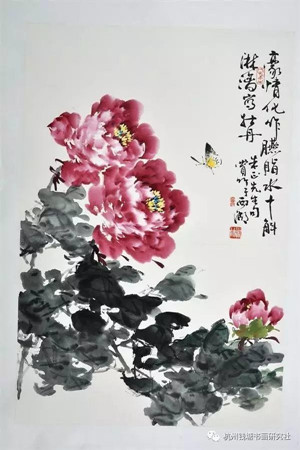 豪情化作臙脂水十斛
淋漓写牡丹
朱正先生句
杭州钱塘书画研究社